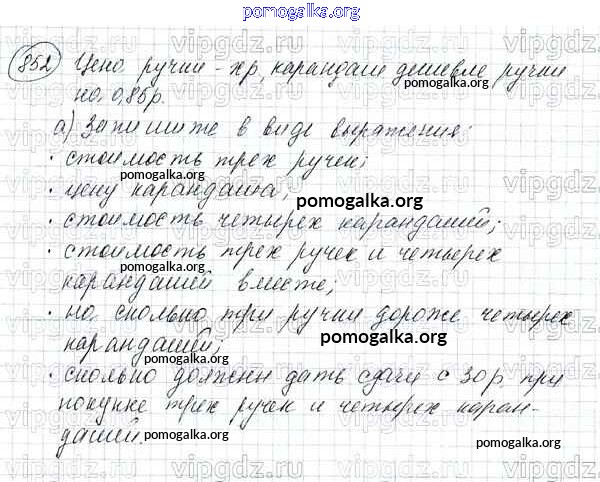 pomogalka.org
852 Цена ручки - x р, карандаш дешевле ручки
на 0,85р.
pomogalka.org
а) Запишите в виде выражения:
· стоимость трех ручек;
pomogalka.org
· цену карандаша;
pomogalka.org
· стоимость четырех карандашей;
· стоимость трех ручек и четырех
pomogalka.org
карандашей вместе;
· на сколько три ручки дороже четырех
pomogalka.org
карандашей;
pomogalka.org
· сколько должны дать сдачи с 30 р. при
покупке трех ручек и четырех каран-
pomogalka.org
дашей.
pomogalka.org
pomogalka.org
vipgdz.ru